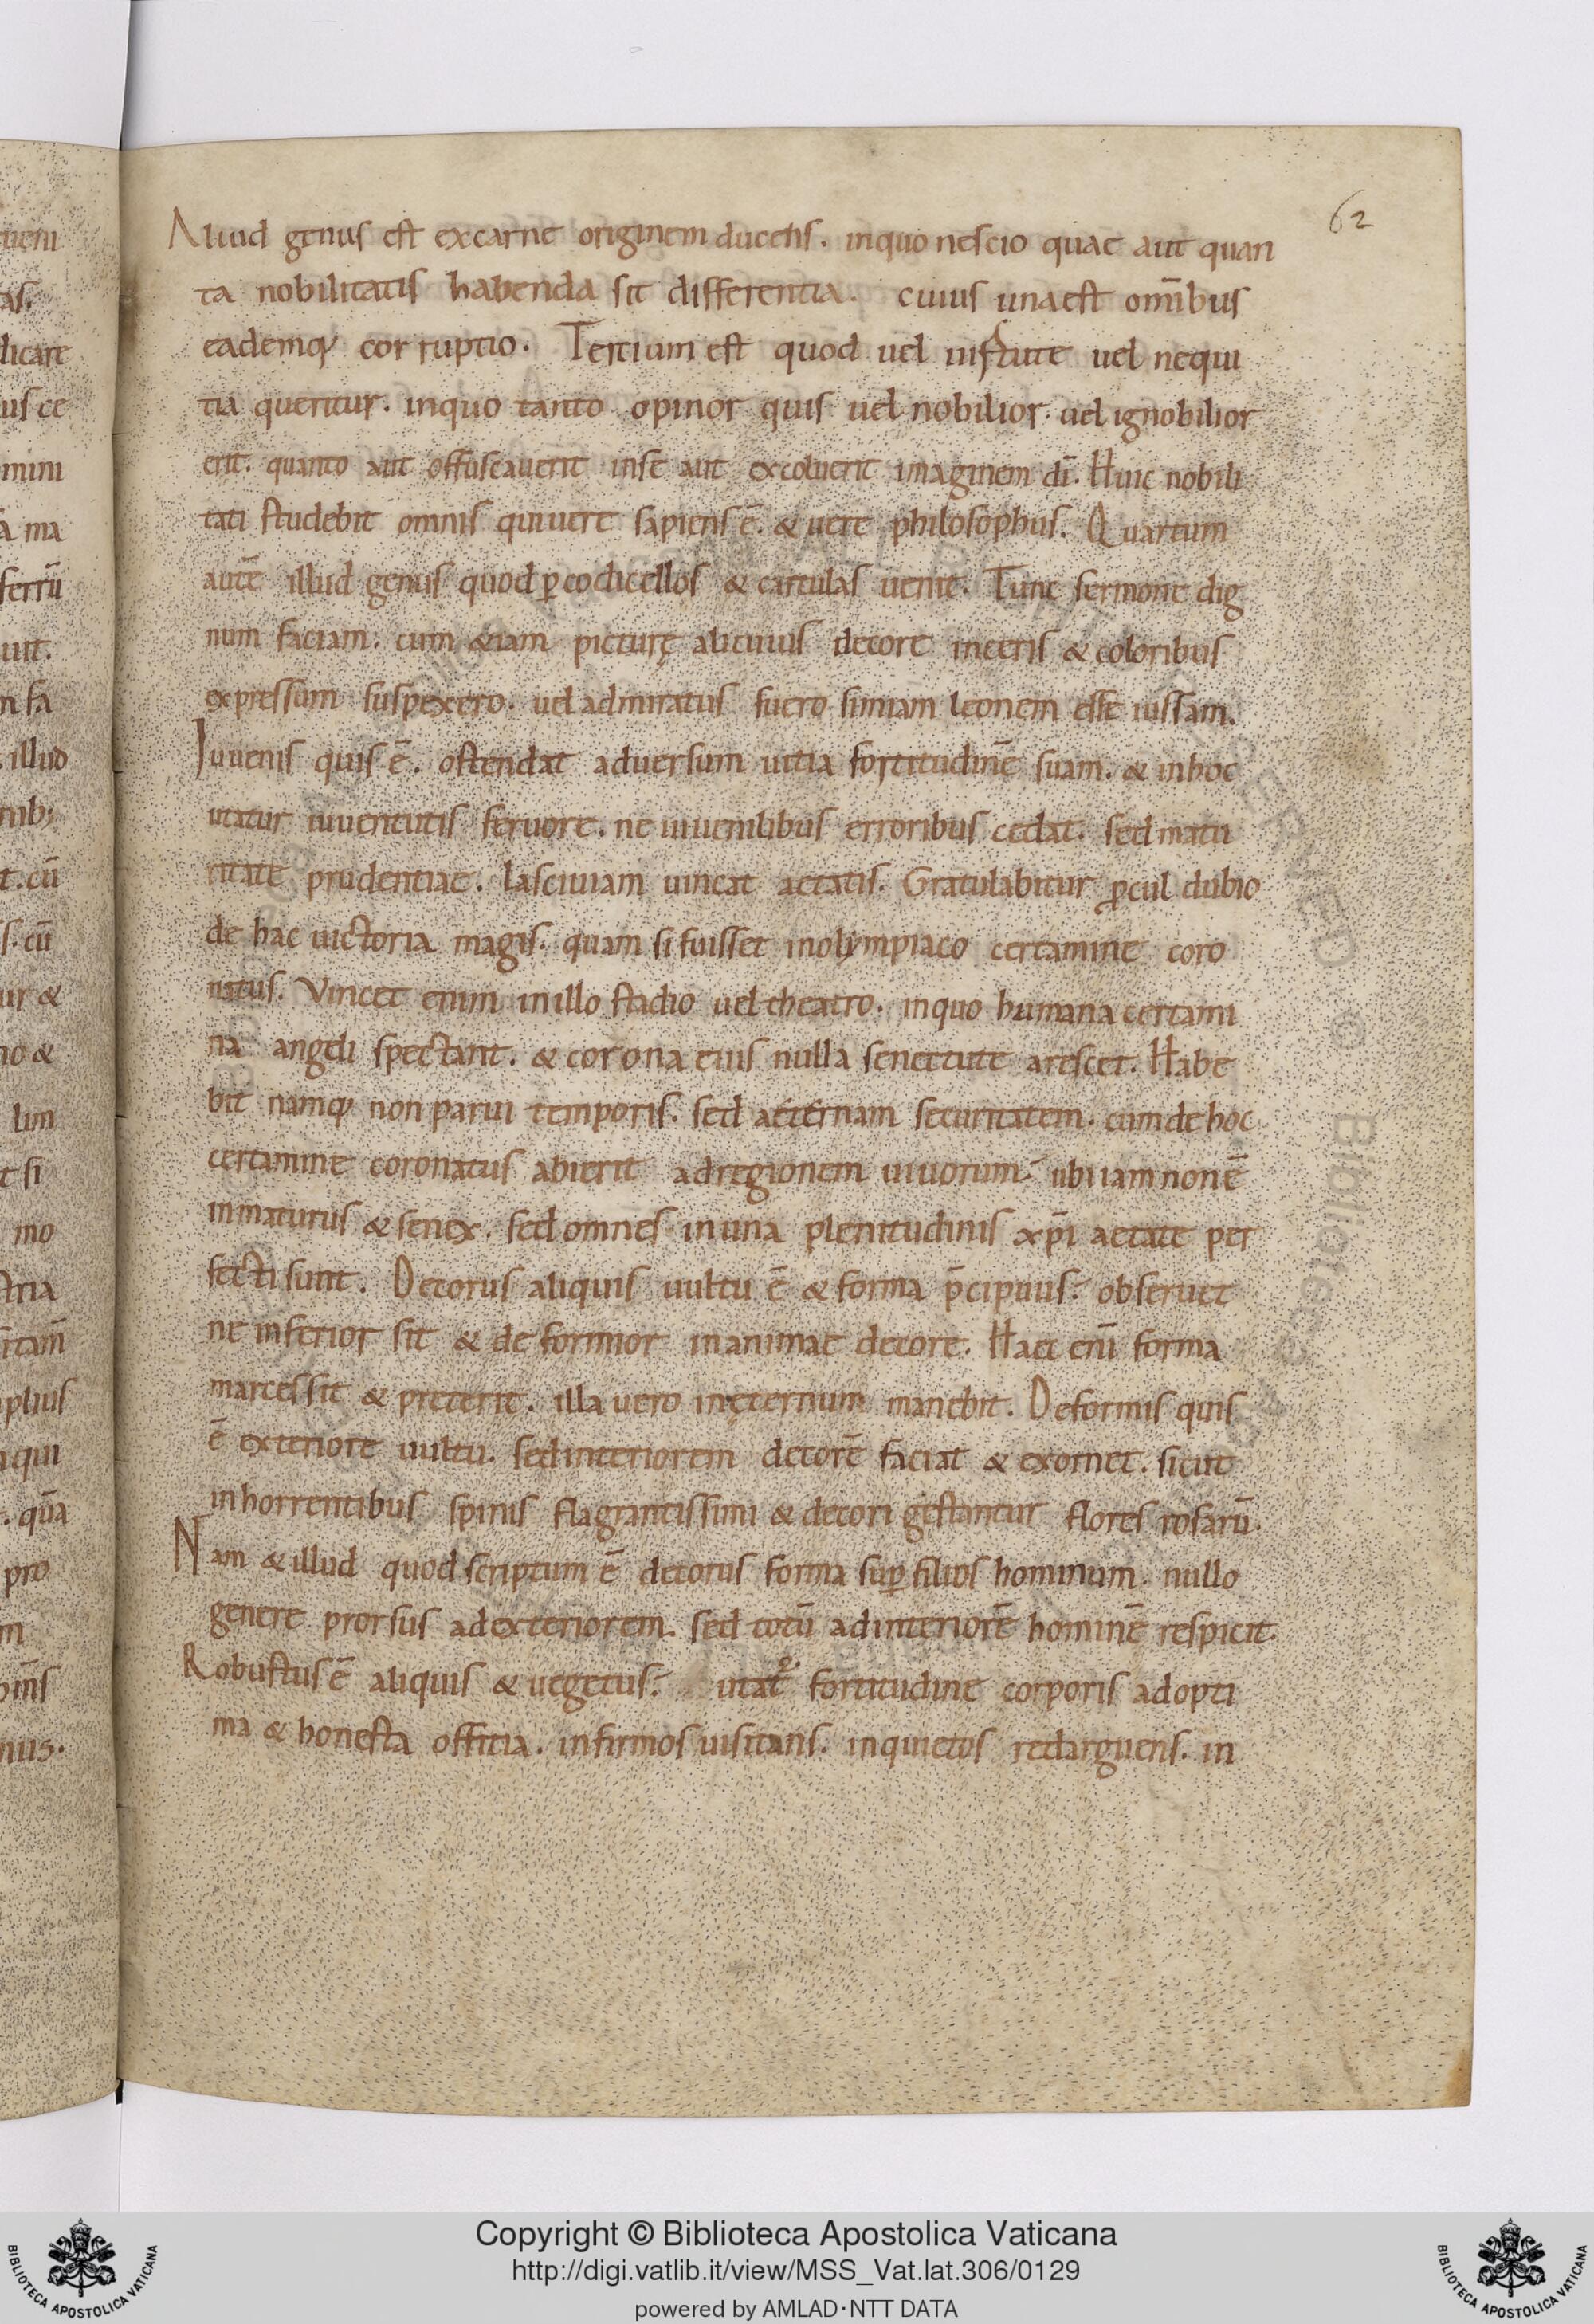 62
Aliud genus est excarne originem ducens. inquo nescio quae aut quan
ta nobilitatis habenda sit differentia. cuius unaest om̄ibus
eademq; corruptio. Tertium est quod uel uirtute uel nequi
tia queritur. inquo tanto opinor quis uel nobilior. uel ignobilior
erit. quanto aut offuscauerit inse aut excoluerit imaginem dī. Huic nobili
tati studebit omnis quiuere sapiens ē. & uere philosophus. Quartum
autē illud genus quod ꝑcodicellos & cartulas uenit. Tunc sermone dig
num faciam. cum &iam picturę alicuius decore inceris & coloribus
expressum suspexero. uel admiratus fuero simiam leonem esse iussam.
Iuuenis quis ē. ostendat aduersum uitia fortitudinē suam. & inhoc
utatur iuuentutis feruore. ne iuuenilibus erroribus cedat. sed matu
ritate prudentiae. lasciuiam uincat aetatis. Gratulabitur ꝓcul dubio
de hac uictoria magis. quam si fuisset inolympiaco certamine coro
natus. Vincet enim inillo stadio uel theatro. inquo humana certami
na angeli spectant. & corona eius nulla senectute arescet. Habe
bit namq; non parui temporis. sed aeternam securitatem. cumdehoc
certamine coronatus abierit adregionem uiuorum. ubi iam non ē
inmaturus & senex. sed omnes inuna plenitudinis xp̄i aetate per
fecti sunt. Decorus aliquis uultu ē & forma p̄cipuus. obseruet
ne inferior sit & deformior inanimae decore. Haec enī forma
marcessit & preterit. illa uero inęternum manebit. Deformis quis
ē exteriore uultu. sed interiorem decorē faciat & exornet. sicut
inhorrentibus spinis flagrantissimi & decori gestantur flores rosarū.
Nam & illud quod scriptum ē decorus forma suꝑ filios hominum. nullo
genere prorsus adexteriorem. sed totū adinteriorē hominē respicit.
Robustus ē aliquis & uegetus. utat᷑ fortitudine corporis adopti
ma & honesta offitia. infirmos uisitans. inquietos redarguens. in
Copyright © Biblioteca Apostolica Vaticana
http://digi.vatlib.it/view/MSS_Vat.lat.306/0129
powered by AMLAD·NTT DATA
BIBLIOTECA APOSTOLICA VATICANA
BIBLIOTECA APOSTOLICA VATICANA